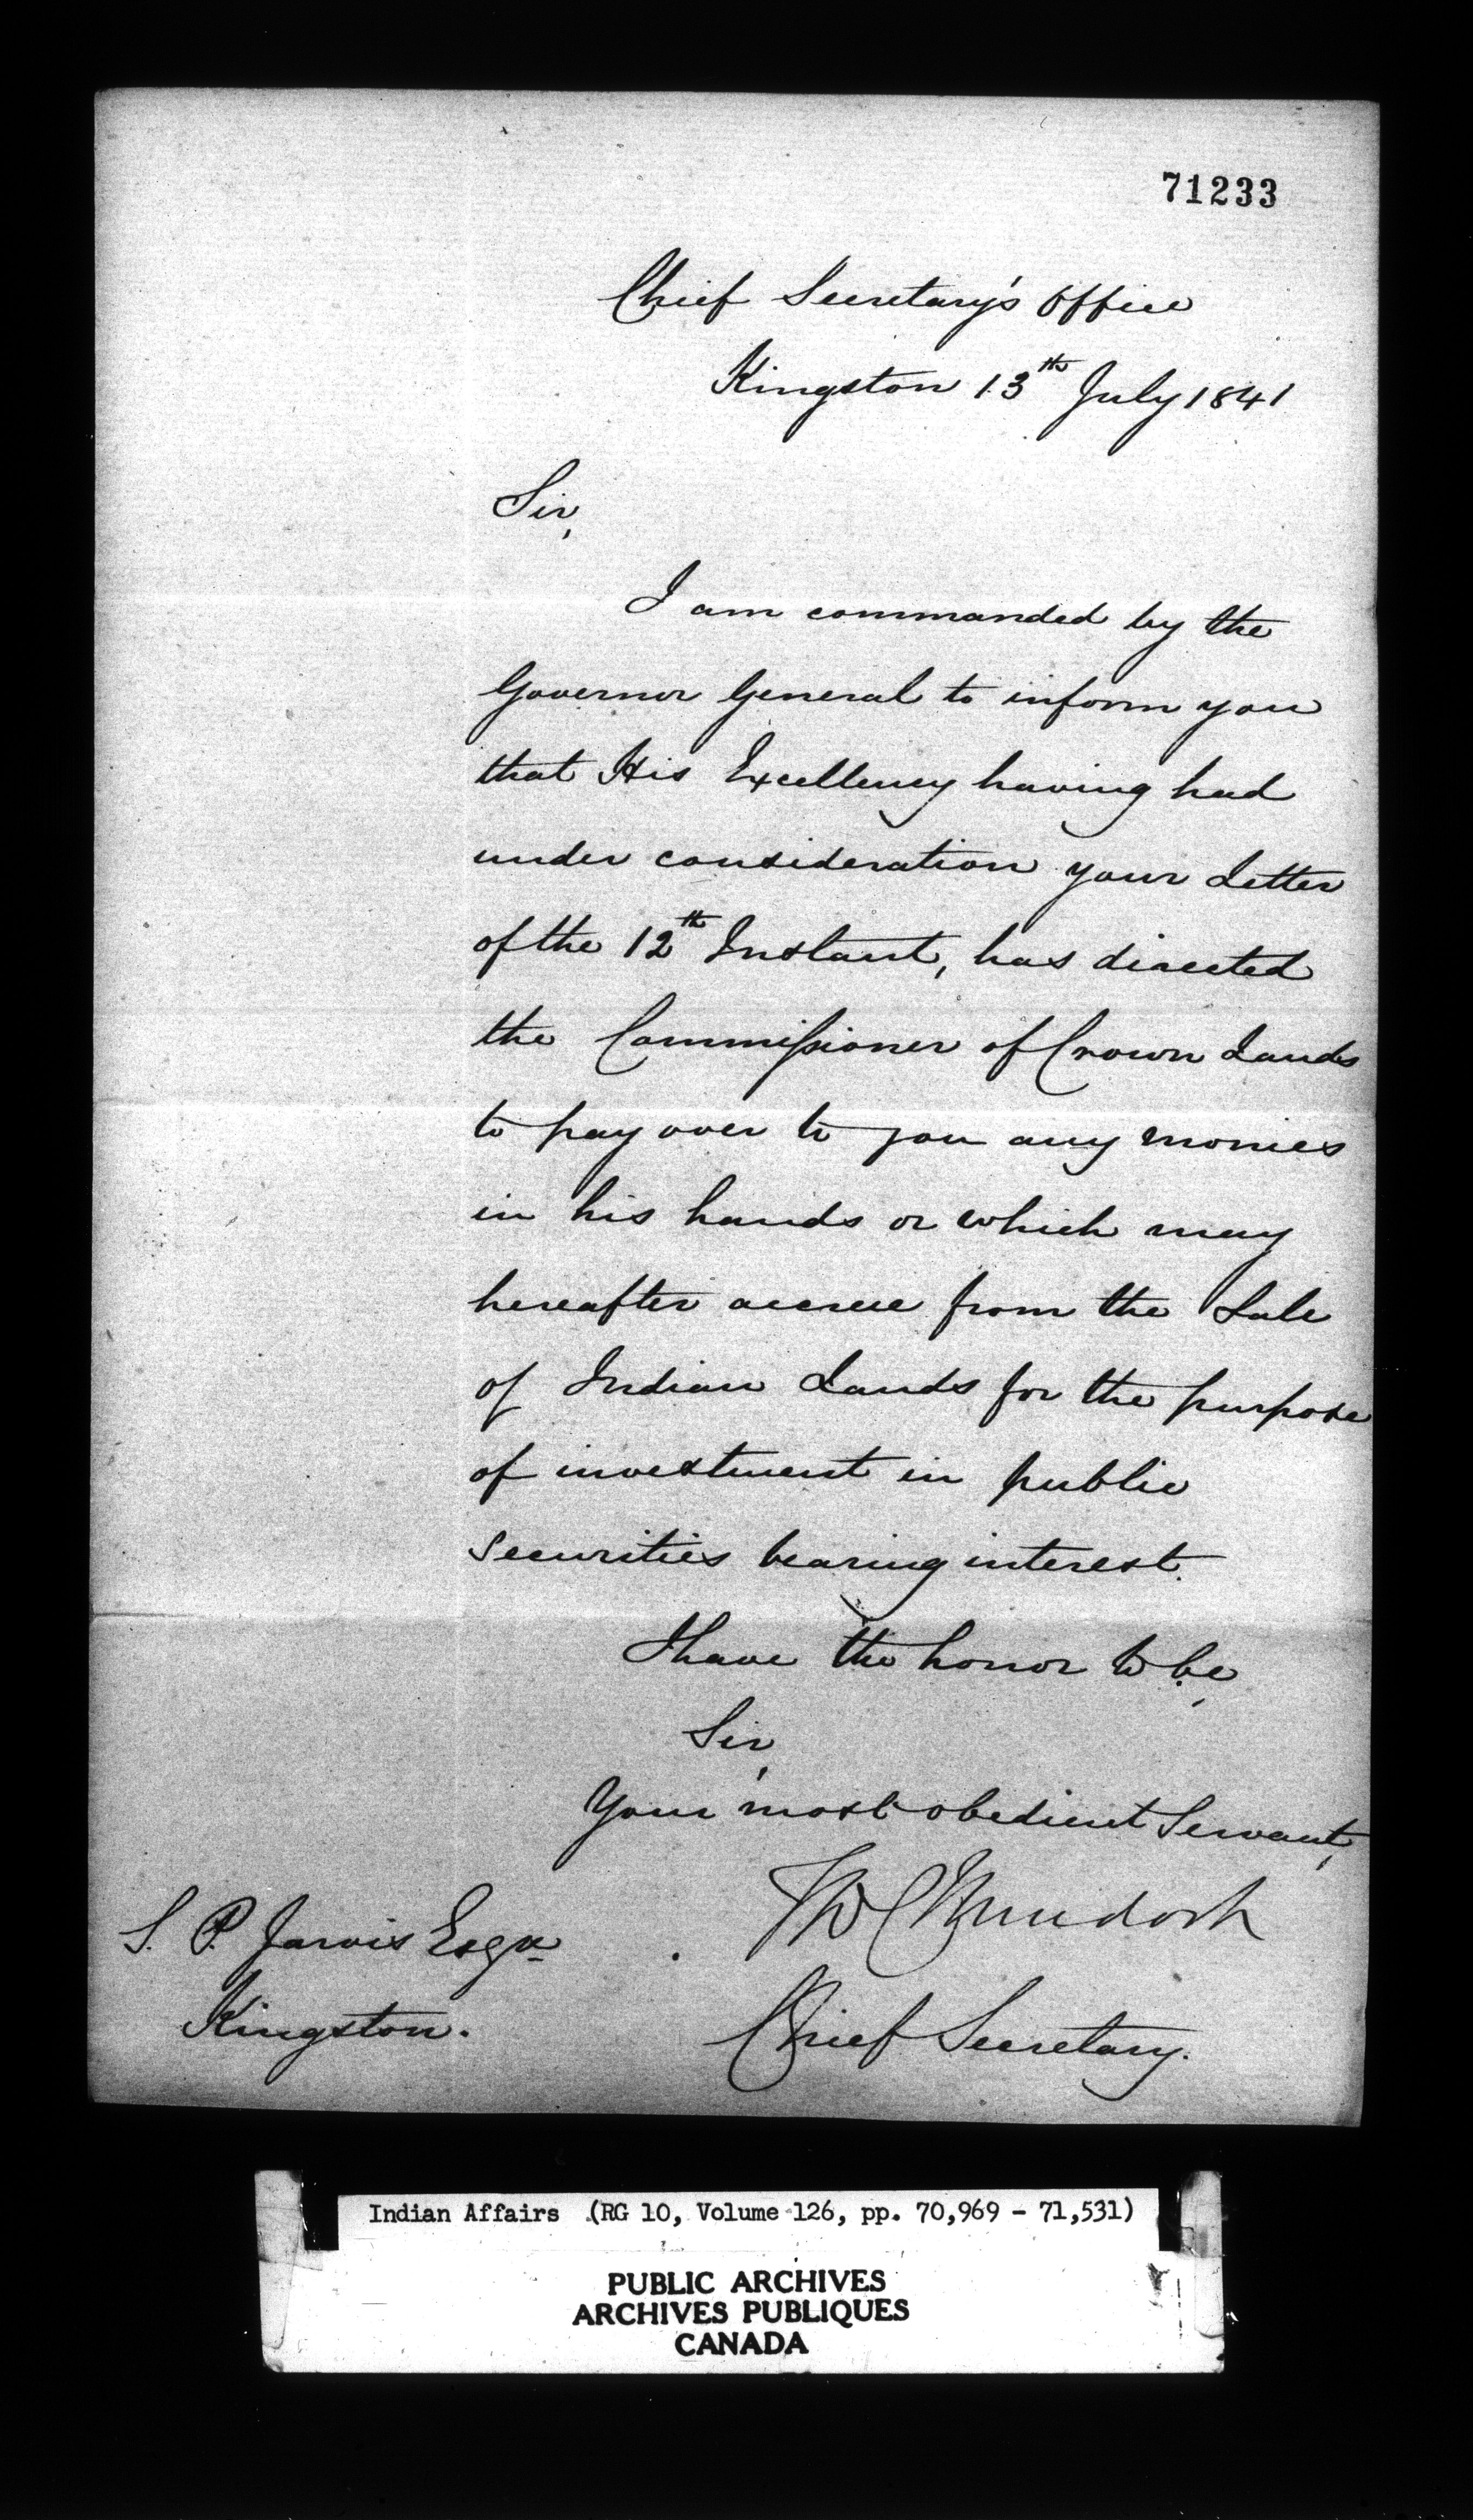 71233
Chief Secretary's Office
Kingston 13th July 1841
Sir,
I am commanded by the
Governor General to inform you
that His Excellency having had
under consideration your Letter
of the 12th Instant, has directed
the Commissioner of Crown Lands
to pay over to you any monies
in his hands or which may
hereafter accrue from the Sale
of Indian Lands for the purpose
of investment in public
securities bearing interest.
I have the honor to be,
Sir,
Your most obedient Servant,
TWC Murdoch
S. P. Jarvis Esqr
Kingston.
Chief Secretary.
Indian Affairs (RG 10, Volume 126, pp. 70,969 - 71,531)
PUBLIC ARCHIVES
ARCHIVES PUBLIQUES
CANADA